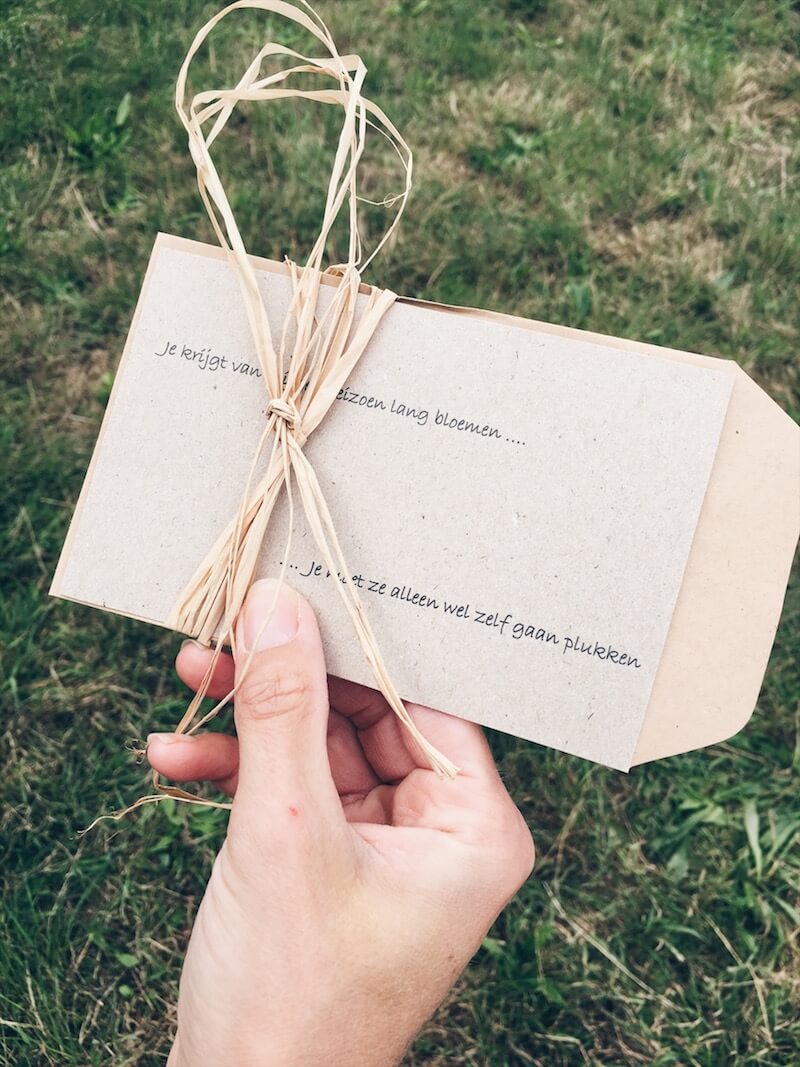 Je krijgt van seizoen lang bloemen ....
.... Je moet ze alleen wel zelf gaan plukken